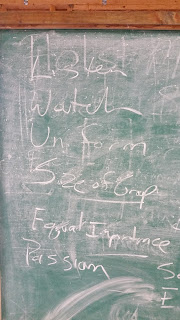 Listen
Watch
Un form
Sec of Grap
Equal Importance
Passion
S
E